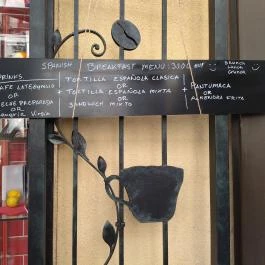 SPANISH BREAKFAST MENU: 3,50€
BRUNCH
LUNCH
DRINKS
CAFE LATE
OR
LECHE PREPARADA
OR
TORTILLA ESPAÑOLA CLASICA
OR
+ TORTILLA ESPAÑOLA MIXTA
OR
SANDWICH MIXTO
+ PANTUMACA
OR
ALMENDRA FRITA